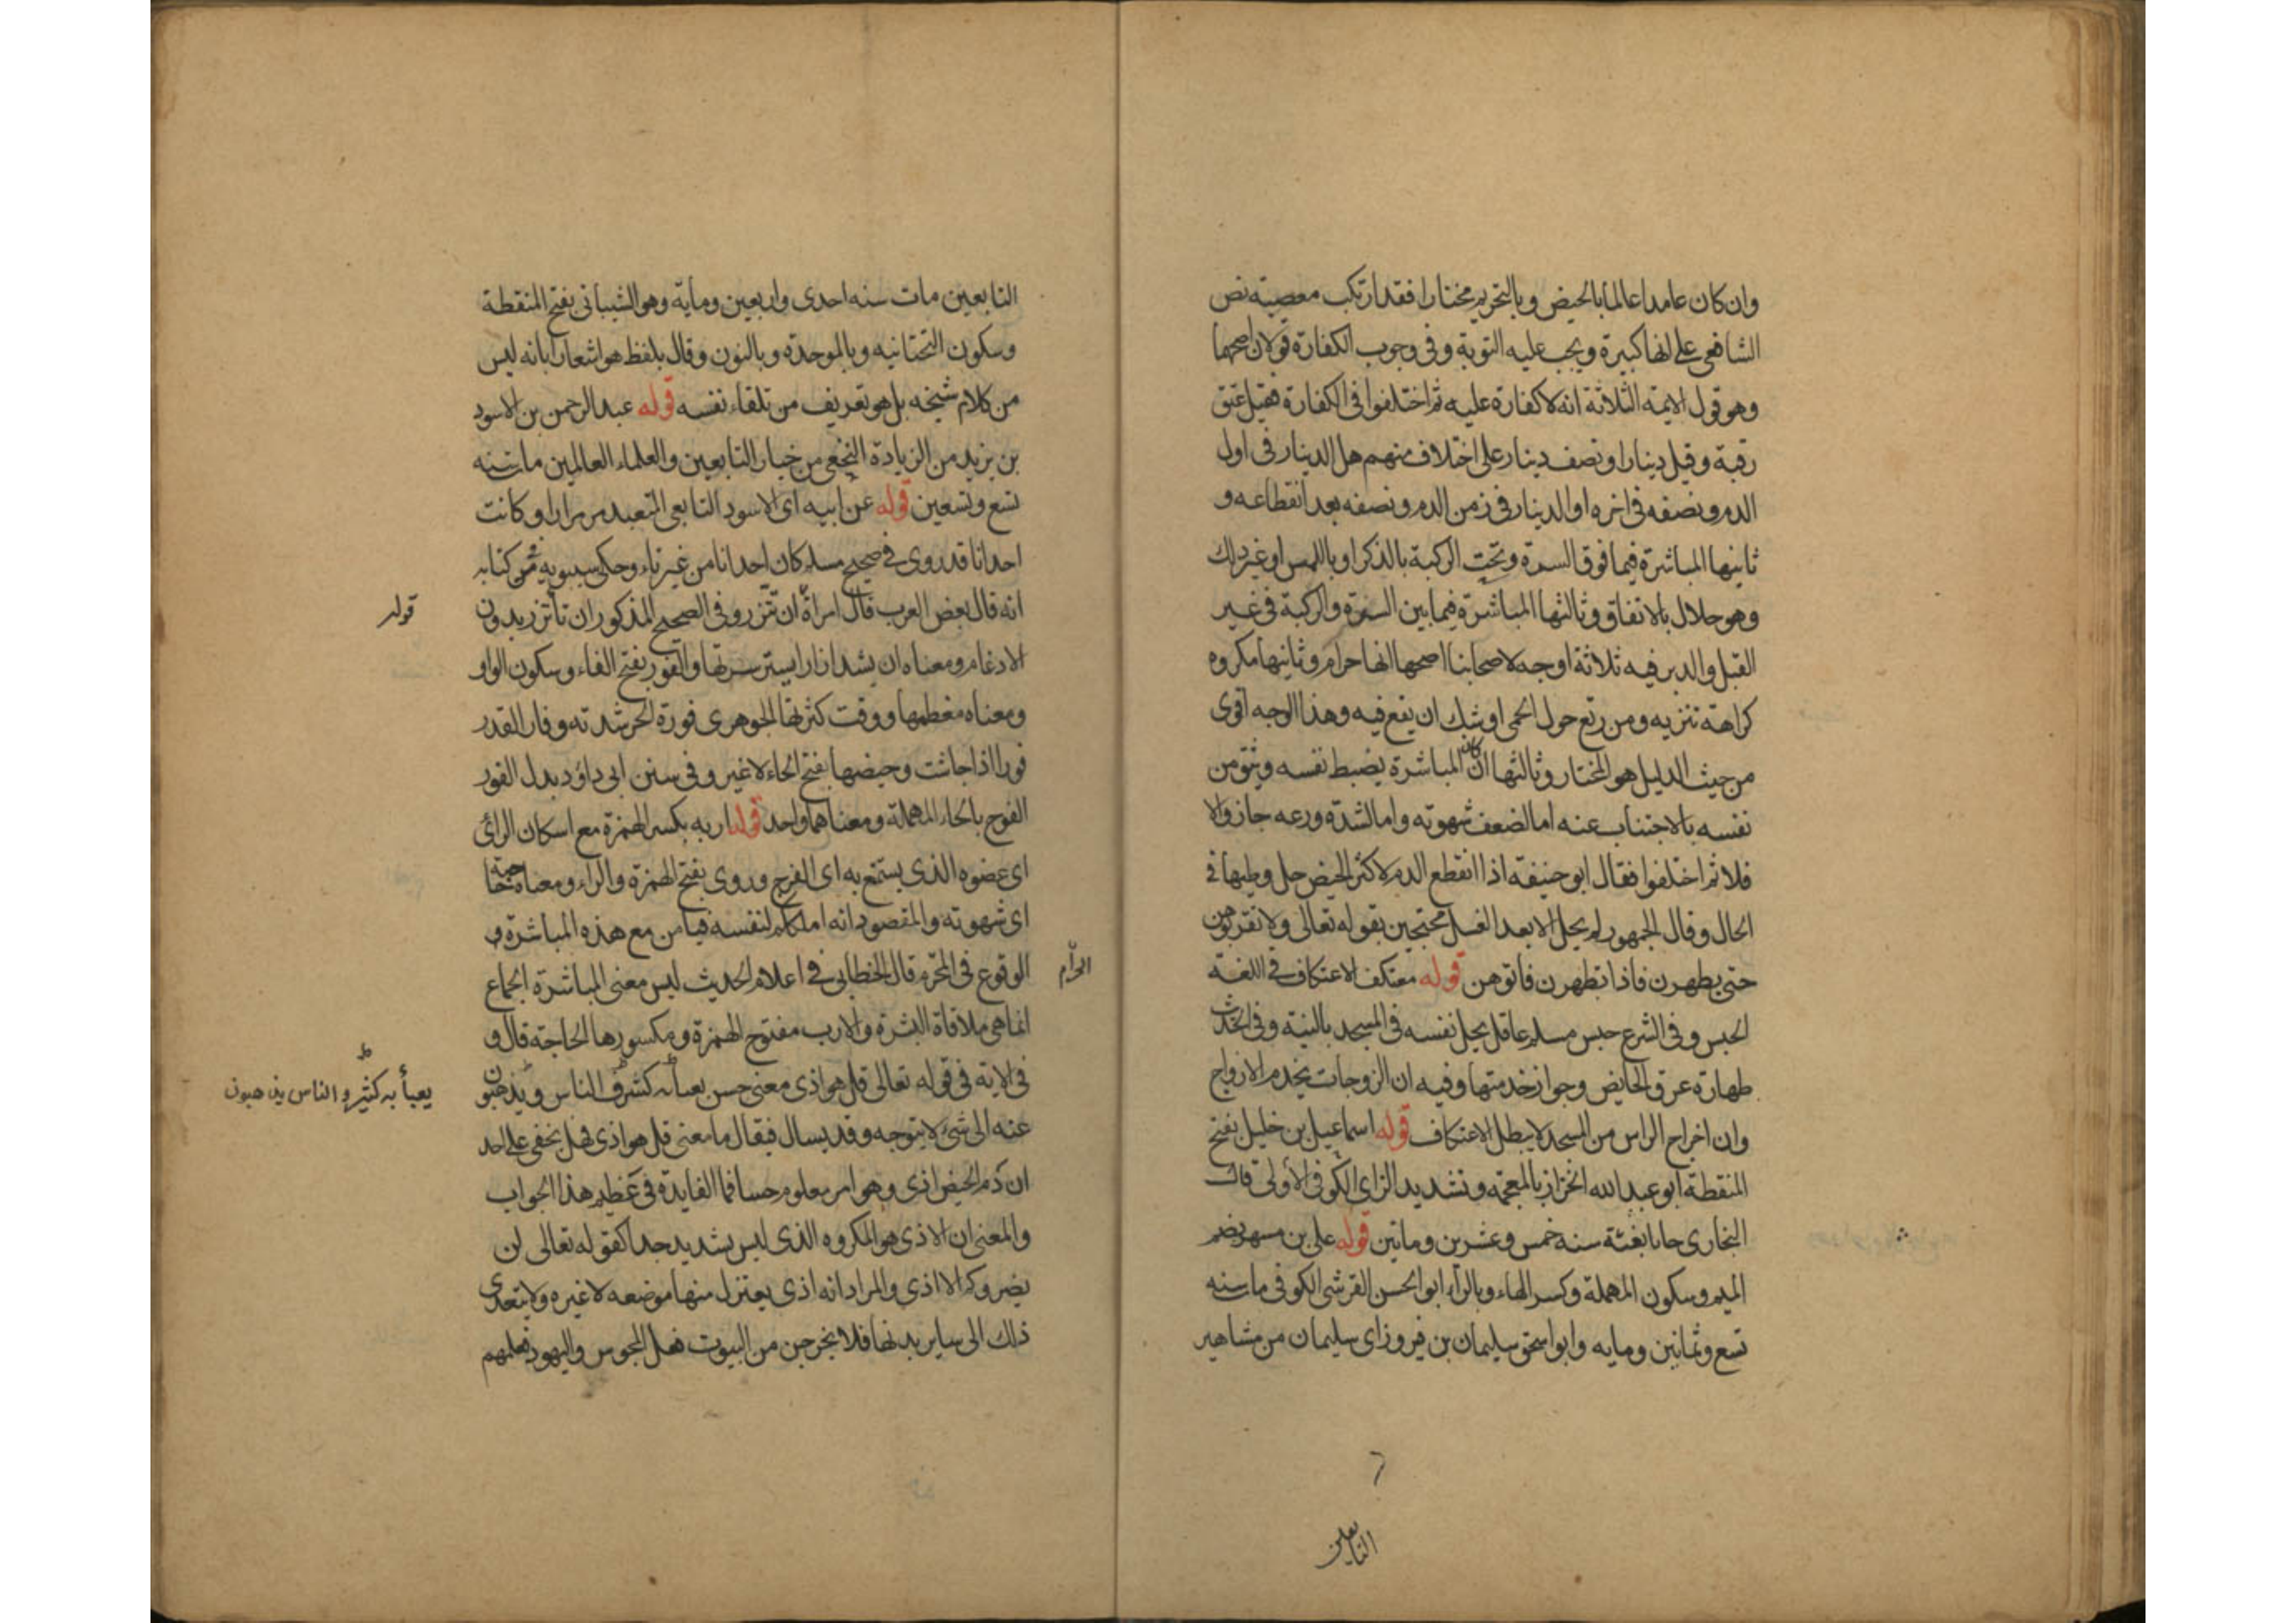 وان كان عامدا عالما بالحيض وبالتحريم مختارا فقد ارتكب معصية نص
الشافعي على انها كبيرة ويجب عليه التوبة وفي وجوب الكفارة قولان اصحهما
وهو قول الايمة الثلاثة انه لا كفارة عليه ثم اختلفوا في الكفارة فقيل عتق
رقبة وقيل دينار او نصف دينار على اختلاف منهم هل الدينار في اول
الدم ونصفه في اخره او الدينار في زمن الدم ونصفه بعد انقطاعه و
ثانيها المباشرة فيما فوق السرة وتحت الركبة بالذكر او باللمس او غير ذلك
وهو حلال بالاتفاق وثالثها المباشرة فيما بين السرة والركبة في غير
القبل والدبر فيه ثلاثة اوجه لاصحابنا اصحها انها حرام وثانيها مكروه
كراهة تنزيه ومن رتع حول الحمى اوشك ان يقع فيه وهذا الوجه اقوى
من حيث الدليل هو المختار وثالثها ان كان المباشرة يضبط نفسه ويثق من
نفسه بالاجتناب عنه اما لضعف شهوته واما لشدة ورعه جاز والا
فلا ثم اختلفوا فقال ابو حنيفة اذا انقطع الدم لاكثر الحيض حل وطيها في
الحال وقال الجمهور لم يحل الا بعد الغسل محتجين بقوله تعالى ولا تقربوهن
حتى يطهرن فاذا تطهرن فاتوهن قوله معتكف الاعتكاف في اللغة
الحبس وفي الشرع حبس مسلم عاقل نفسه في المسجد بالنية وفي الحديث
طهارة عرق الحايض وجواز خدمتها وفيه ان الزوجات يخدم الازواج
وان اخراج الراس من المسجد لا يبطل الاعتكاف قوله اسماعيل بن خليل بفتح
المنقطة ابو عبد الله الخزاز بالمعجمة وتشديد الزاي الكوفي الاولى قال
البخاري جانا نعيه سنه خمس وعشرين وماتين قوله علي بن مسهر بضم
الميم وسكون المهملة وكسر الهاء وبالراء ابو الحسن القرشي الكوفي مات سنه
تسع وثمانين ومايه وابو اسحق سليمان بن فيروز اى سليمان من مشاهير
التابعين
التابعين مات سنه احدى واربعين وماية وهو الشيباني بفتح المنقطة
وسكون التحتانيه وبالموحدة وبالنون وقال بلفظ هو اشعارا بانه ليس
من كلام شيخه بل هو تعريف من تلقاء نفسه قوله عبد الرحمن بن الاسود
بن يزيد من الزيادة النخعي من خيار التابعين والعلماء العالمين مات سنه
تسع وتسعين قوله عن ابيه اى الاسود التابعي المتعبد مر مرارا وكانت
احدانا قد روى في صحيح مسلم كان احدانا من غير تاء وحكى سيبويه في كتابه
انه قال بعض العرب قال امراة ان تتزر وفي الصحيح المذكور ان تأتزر بدون
الادغام ومعناه ان يشد ازارا يستر سرتها والفور بفتح الفاء وسكون الواو
ومعناه معظمها ووقت كثرتها الجوهرى فورة الحر شدته وفار القدر
فورا اذا جاشت وحيضها بفتح الحاء لا غير وفي سنن ابى داؤد بدل الفور
الفوح بالحاء المهملة ومعناهما واحد قوله اربه بكسر الهمزة مع اسكان الراى
اى عضوه الذى يستمتع به اى الفرج وروى بفتح الهمزة والراء ومعناه حاجته
اى شهوته والمقصود انه املككم لنفسه فيامن مع هذه المباشرة و
الوقوع في المحرم قال الخطابى في اعلام الحديث ليس معنى المباشرة الجماع
انما هي ملاقاة البشرة والارب مفتوح الهمزة ومكسورها الحاجة قال و
في الاية في قوله تعالى قل هو اذى معنى حسن يعبأ به كثير والناس ويذهبون
عنه الى شئ لا يتوجه وقد يسال فيقال ما معنى قل هو اذى فهل يخفى على احد
ان دم الحيض اذى وهو امر معلوم حسا فما الفايدة في هذا الجواب
والمعنى ان الاذى هو المكروه الذى ليس بشديد جدا كقوله تعالى لن
يضروكم الا اذى والمراد انه اذى يعتزل منها موضعه لا غيره ولا يتعدى
ذلك الى ساير بدنها فلا يخرجن من البيوت فعل المجوس واليهود
قوله
يعبأ به كثير والناس يذهبون